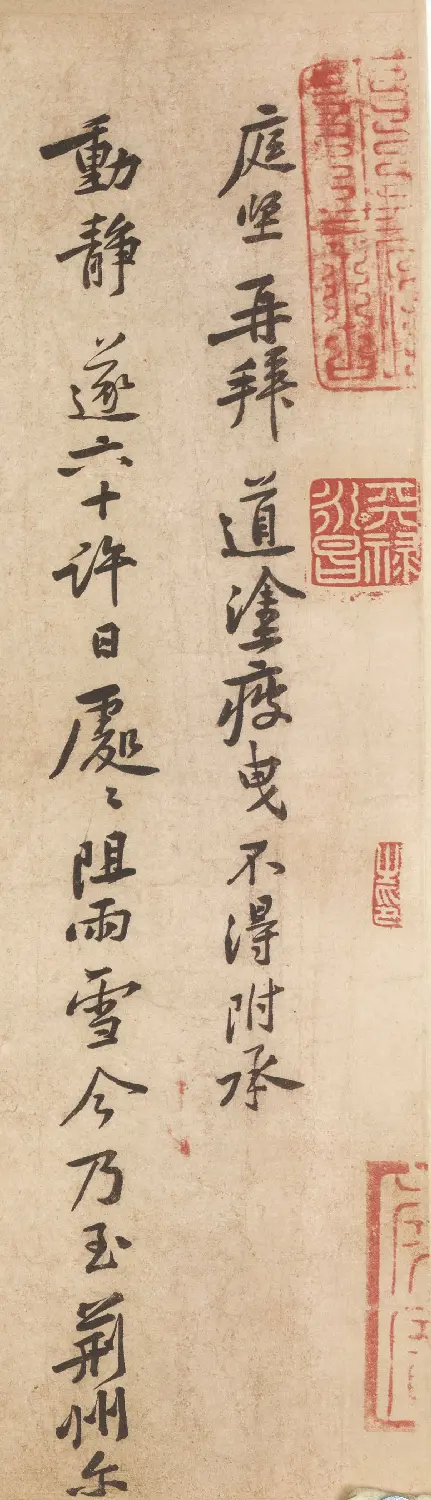 天祿永昌
庭堅再拜道塗疲曳不得附承
動靜遂六十許日處〻阻雨雪今乃至荊州尔